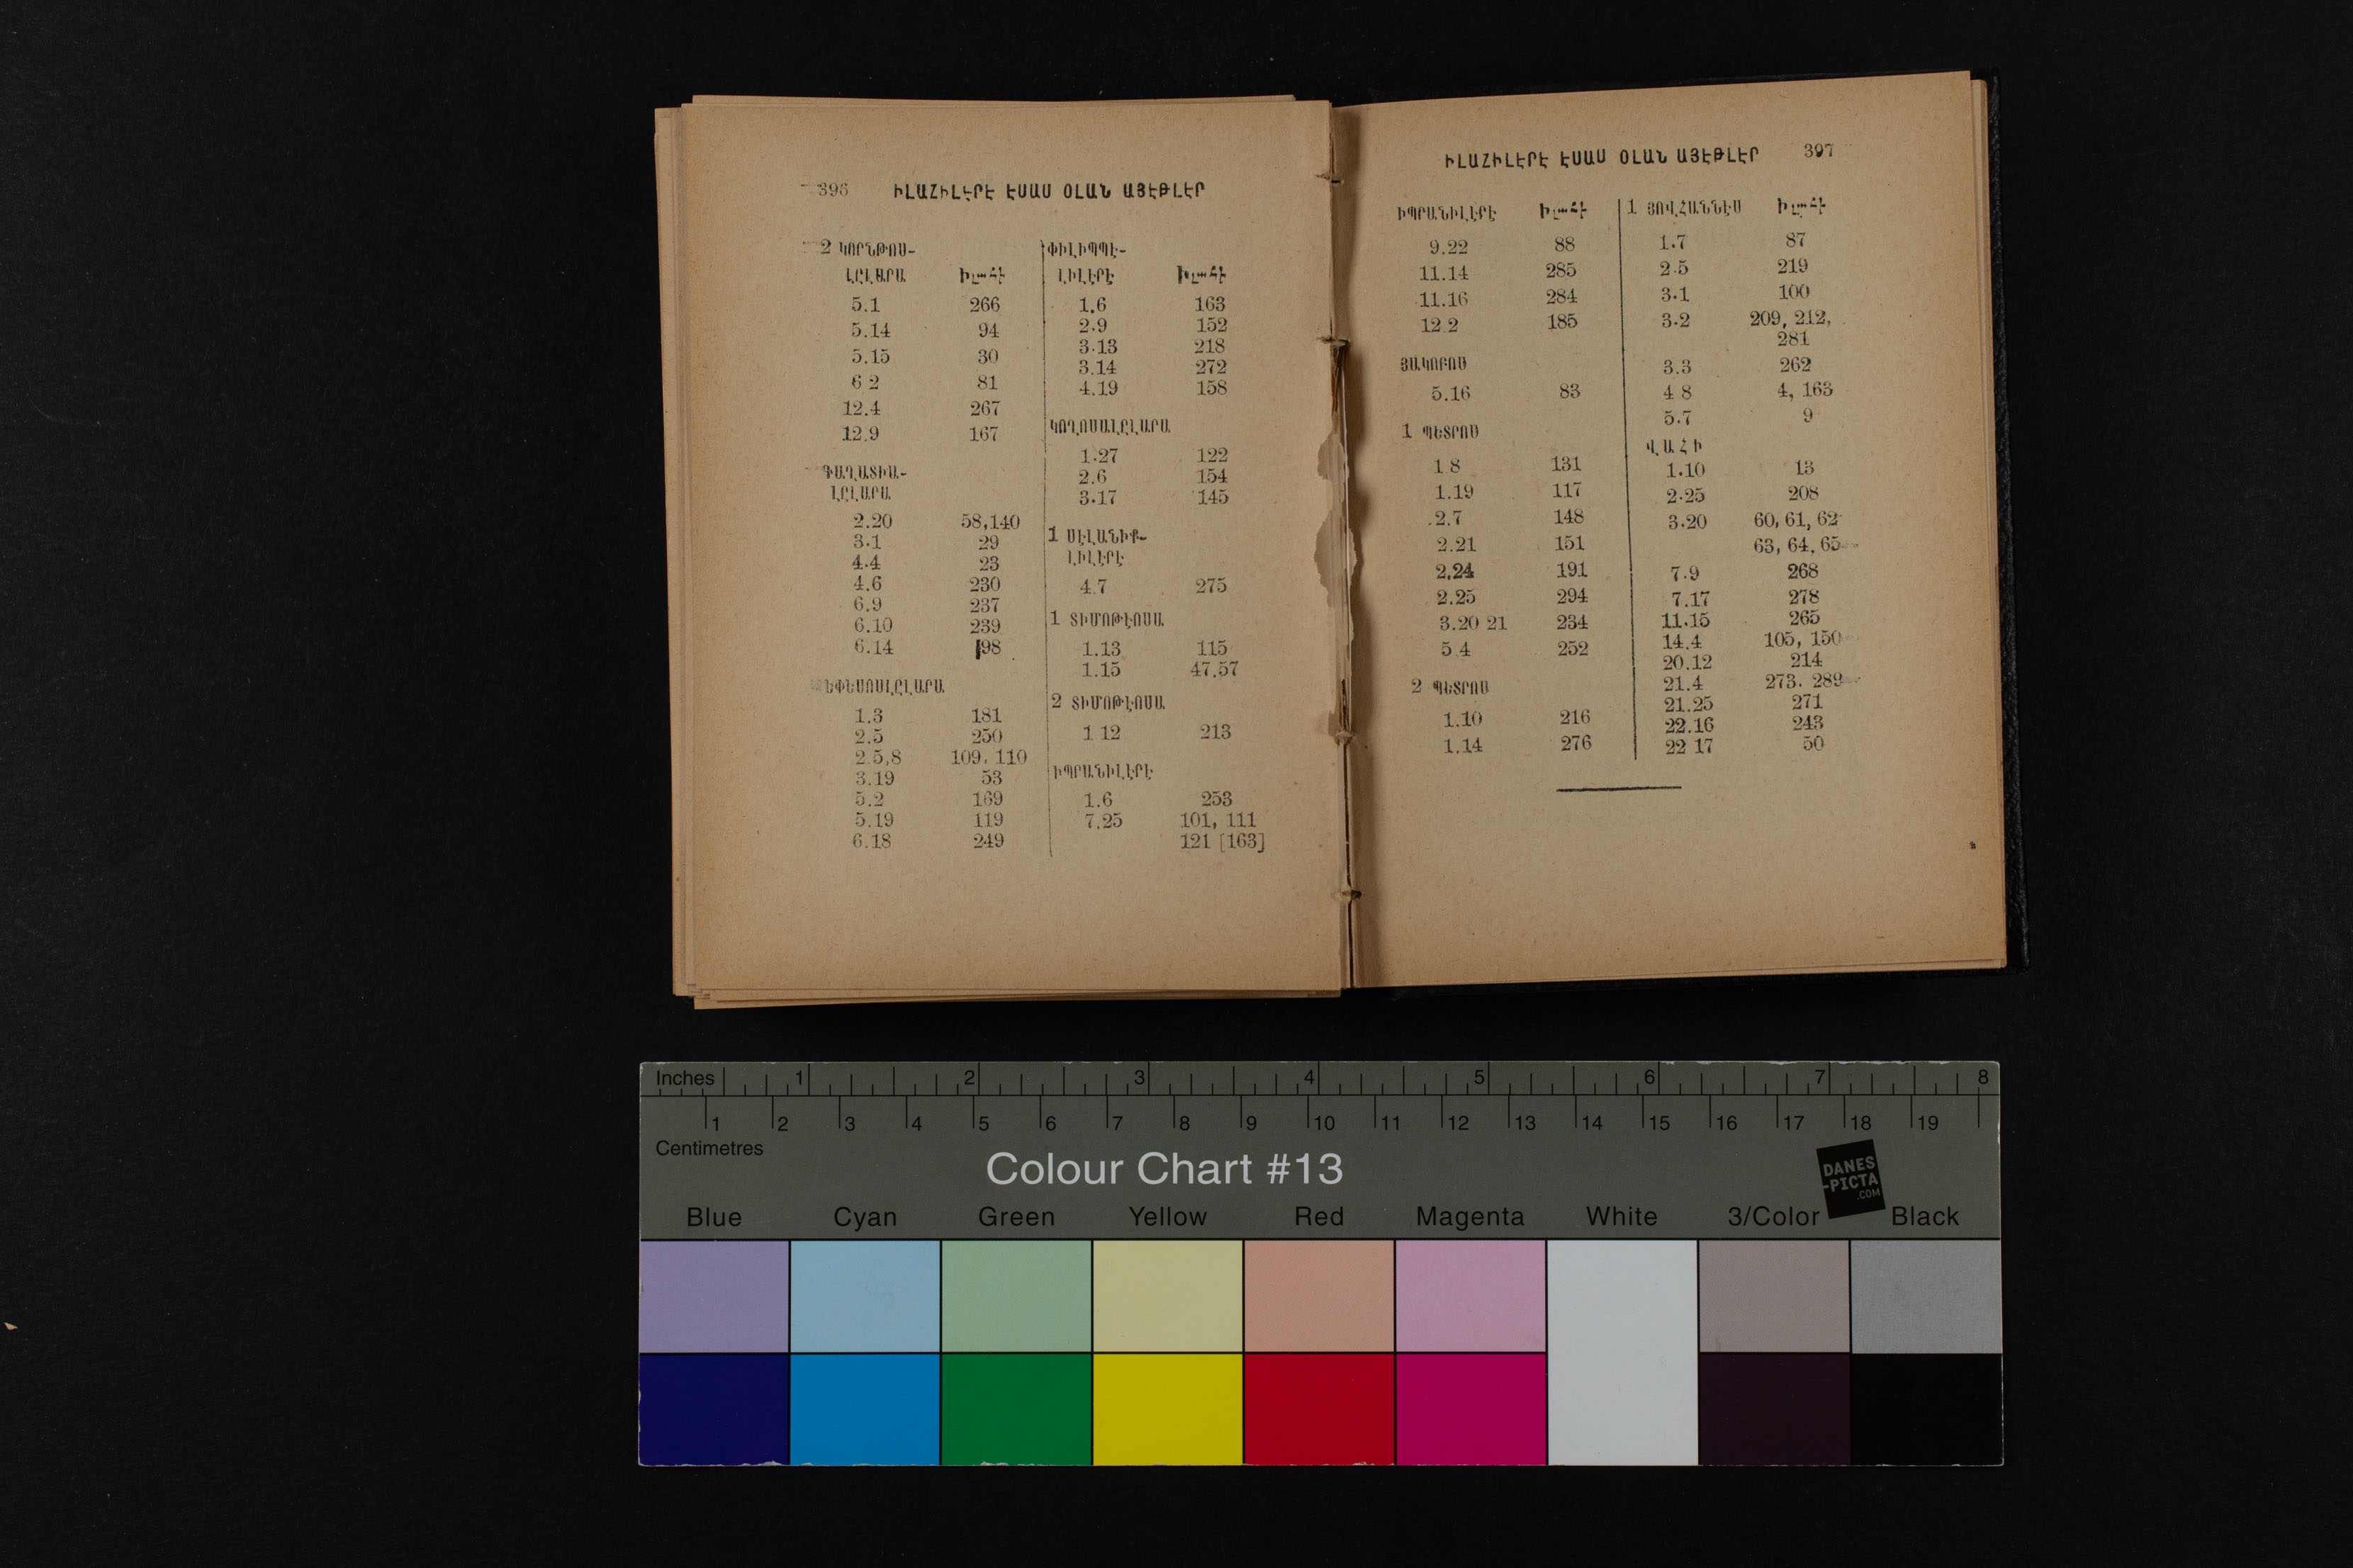 396 ԻԼԱՀԻԼԷՐԷ ԷՍԱՍ ՕԼԱՆ ԱՅԷԹԼԷՐ
2 ԿՈՐՆԹՈՍ-
ԼԸԼԱՐԱ Իլահի
5.1 266
5.14 94
5.15 30
6 2 81
12.4 267
12.9 167
ԳԱՂԱՏԻԱ-
ԼԸԼԱՐԱ
2.20 58,140
3.1 29
4.4 23
4.6 230
6.9 237
6.10 239
6.14 98
ԵՓԵՍՈՍԼԸԼԱՐԱ
1.3 181
2.5 250
2.5,8 109, 110
3.19 53
5.2 169
5.19 119
6.18 249
ՓԻԼԻՊՊԷ-
ԼԻԼԷՐԷ Իլահի
1.6 163
2.9 152
3.13 218
3.14 272
4.19 158
ԿՈՂՈՍԱԼԸԼԱՐԱ
1.27 122
2.6 154
3.17 145
1 ՍԷԼԱՆԻՔ-
ԼԻԼԷՐԷ
4.7 275
1 ՏԻՄՈԹԷՈՍԱ
1.13 115
1.15 47.57
2 ՏԻՄՈԹԷՈՍԱ
1 12 213
ԻՊՐԱՆԻԼԷՐԷ
1.6 253
7.25 101, 111
121 [163]
ԻԼԱՀԻԼԷՐԷ ԷՍԱՍ ՕԼԱՆ ԱՅԷԹԼԷՐ 397
ԻՊՐԱՆԻԼԷՐԷ Իլահի
9.22 88
11.14 285
11.16 284
12 2 185
ՅԱԿՈԲՈՍ
5.16 83
1 ՊԵՏՐՈՍ
1 8 131
1.19 117
2.7 148
2.21 151
2.24 191
2.25 294
3.20 21 234
5 4 252
2 ՊԵՏՐՈՍ
1.10 216
1.14 276
1 ՅՈՎՀԱՆՆԷՍ Իլահի
1.7 87
2.5 219
3.1 100
3.2 209, 212,
281
3.3 262
4 8 4, 163
5.7 9
ՎԱՀԻ
1.10 13
2.25 208
3.20 60, 61, 62
63, 64, 65
7.9 268
7.17 278
11.15 265
14.4 105, 150
20.12 214
21.4 273. 289
21.25 271
22.16 243
22 17 50
Inches 1 2 3 4 5 6 7 8
1 2 3 4 5 6 7 8 9 10 11 12 13 14 15 16 17 18 19
Centimetres
Colour Chart #13
DANES
-PICTA
.COM
Blue Cyan Green Yellow Red Magenta White 3/Color Black